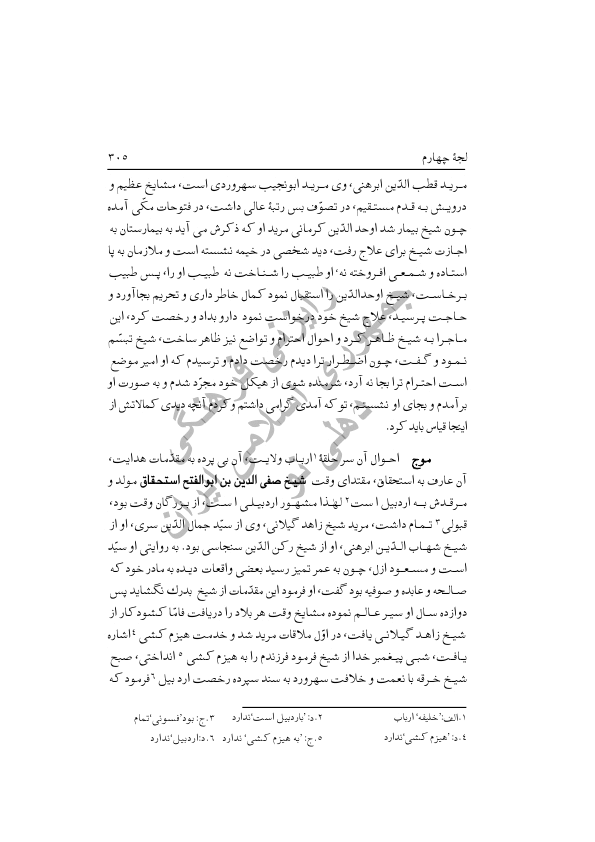 لجۀ چهارم ۳۰۵
مرید قطب الدّین ابرهنی، وی مرید ابونجیب سهروردی است، مشایخ عظیم و
درویش به قدم مستقیم، در تصوّف بس رتبۀ عالی داشت، در فتوحات مکّی آمده
چون شیخ بیمار شد اوحد الدّین کرمانی مرید او که ذکرش می آید به بیمارستان به
اجازت شیخ برای علاج رفت، دید شخصی در خیمه نشسته است و ملازمان به پا
استاده و شمعی افروخته نه، او طبیب را شناخت نه طبیب او را، پس طبیب
برخاست، شیخ اوحدالدّین را استقبال نمود کمال خاطر داری و تحریم بجا آورد و
حاجت پرسید، علاج شیخ خود درخواست نمود دارو بداد و رخصت کرد، این
ماجرا به شیخ ظاهر کرد و احوال احترام و تواضع نیز ظاهر ساخت، شیخ تبسّم
نمود و گفت، چون اضطرار ترا دیدم رخصت دادم و ترسیدم که او امیر موضع
است احترام ترا بجا نه آرد، شرمنده شوی از هیکل خود مجرّد شدم و به صورت او
برآمدم و بجای او نشستم، تو که آمدی گرامی داشتم و کردم آنچه دیدی کمالاتش از
اینجا قیاس باید کرد.
موج احوال آن سر حلقۀ ۱ ارباب ولایت، آن بی پرده به مقدّمات هدایت،
آن عارف به استحقاق، مقتدای وقت شیخ صفی الدین بن ابوالفتح استحقاق مولد و
مرقدش به اردبیل است ۲ لهٰذا مشهور اردبیلی است، از بزرگان وقت بود،
قبولی ۳ تمام داشت، مرید شیخ زاهد گیلانی، وی از سیّد جمال الدّین سری، او از
شیخ شهاب الدّین ابرهنی، او از شیخ رکن الدّین سنجاسی بود. به روایتی او سیّد
است و مسعود ازل، چون به عمر تمیز رسید بعضی واقعات دیده به مادر خود که
صالحه و عابده و صوفیه بود گفت، او فرمود این مقدّمات از شیخ بدرك نگشاید پس
دوازده سال او سیر عالم نموده مشایخ وقت هر بلاد را دریافت فامّا کشود کار از
شیخ زاهد گیلانی یافت، در اوّل ملاقات مرید شد و خدمت هیزم کشی ۴ اشاره
یافت، شبی پیغمبر خدا از شیخ فرمود فرزندم را به هیزم کشی ۵ انداختی، صبح
شیخ خرقه با نعمت و خلافت سهرورد به سند سپرده رخصت اردبیل ۶ فرمود که
۱.الف:’خلیفه‘ ارباب ۲.د:’باردبیل است‘ندارد ۳.ج: بود’فسونی‘تمام
۴.د: ’هیزم کشی‘ندارد ۵.ج: ’به هیزم کشی‘ ندارد ۶.د:اردبیل‘ندارد